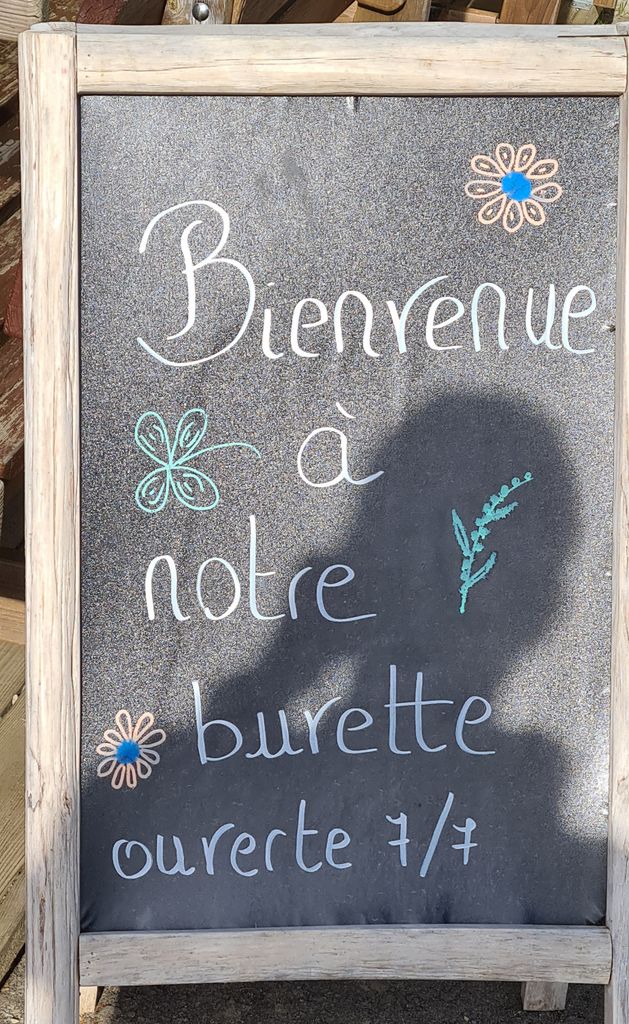 Bienvenue
à
notre
burette
ouverte 7/7